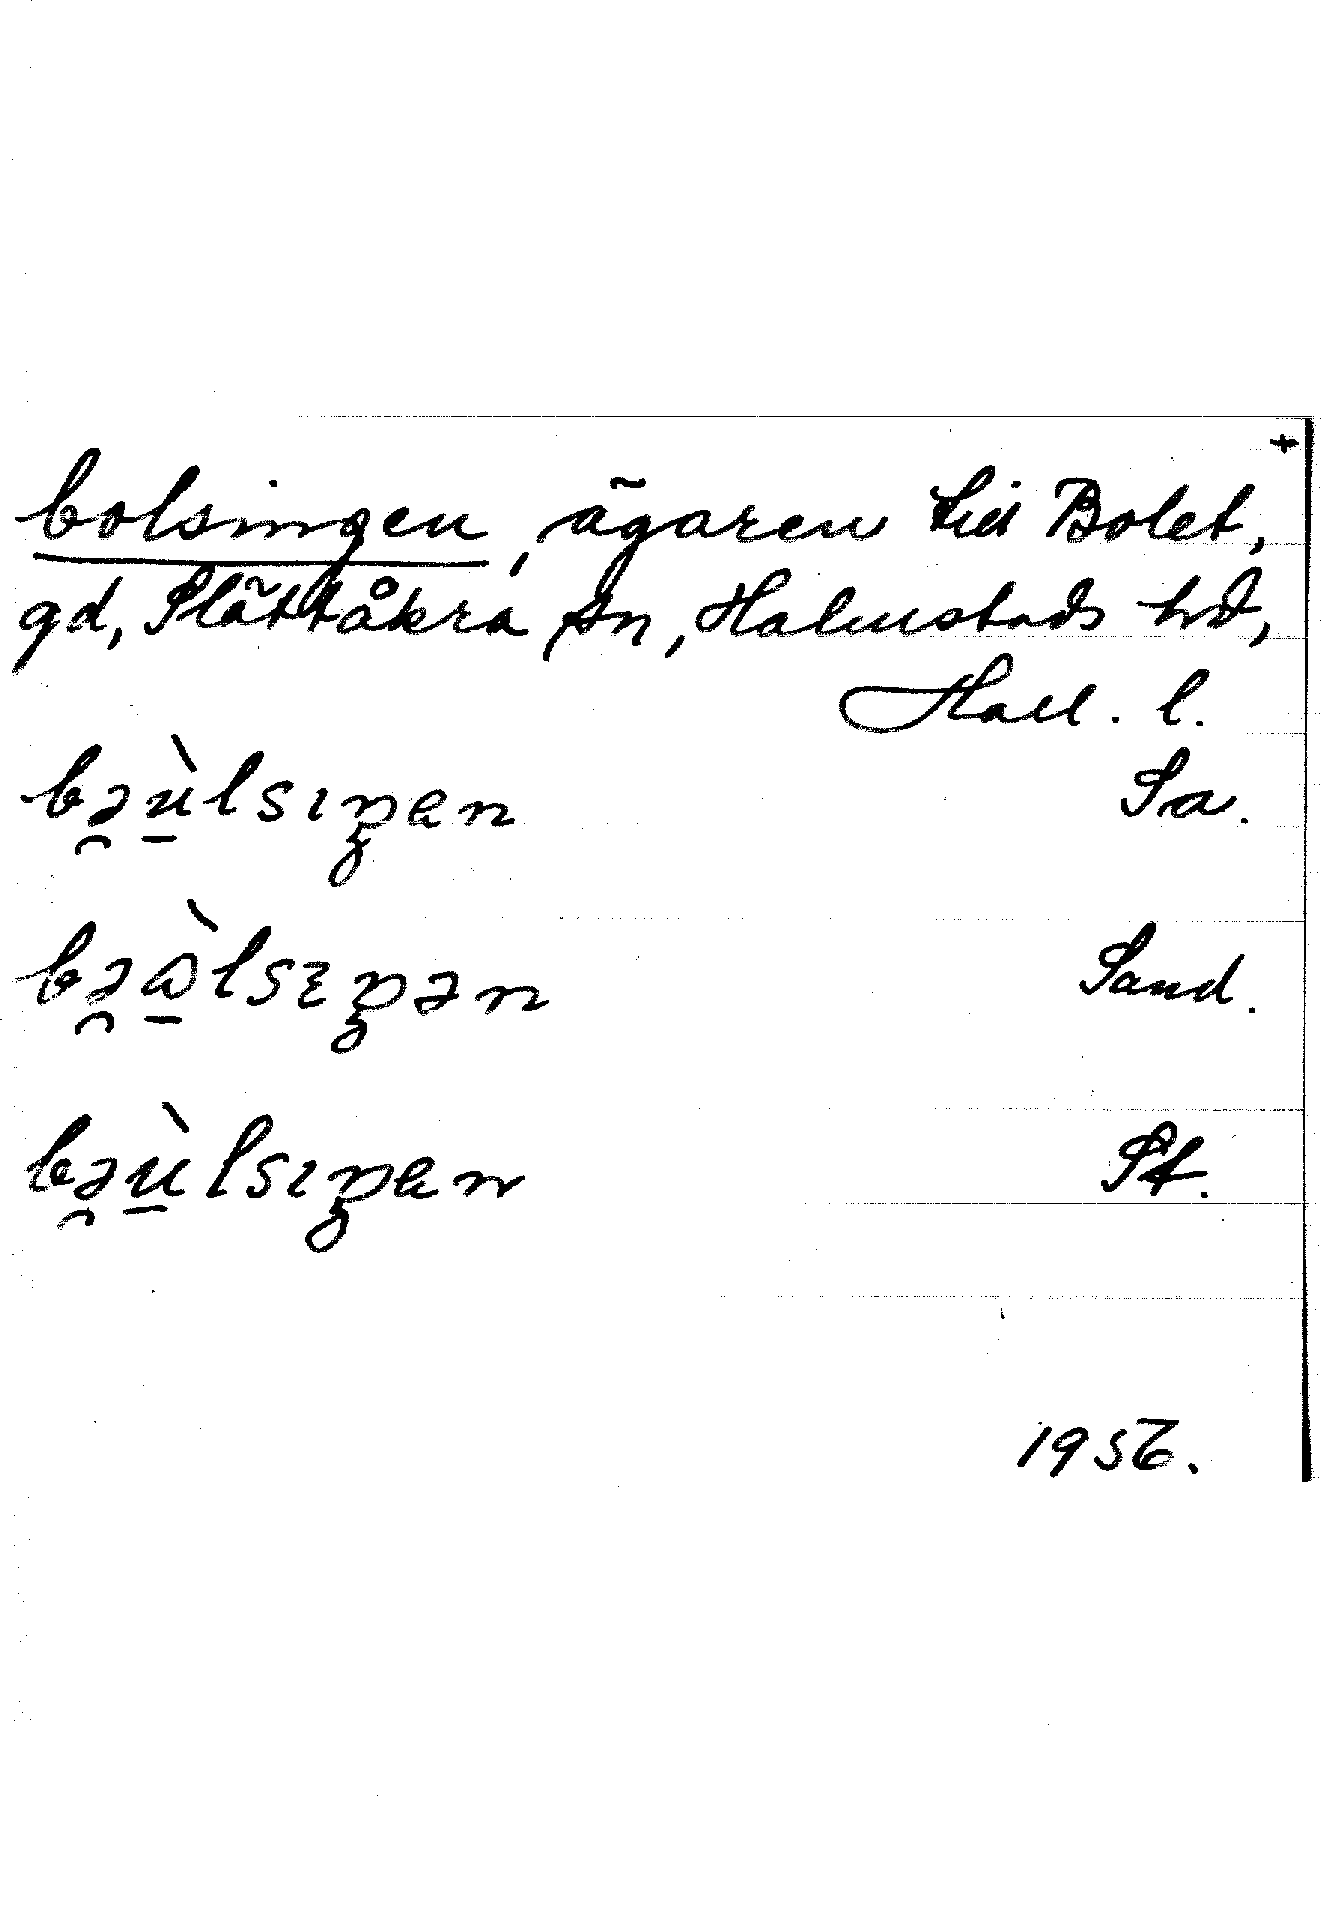 +
bolsingen, ägaren till Bolet,
gd, Slättåkra sn, Halmstads hd,
Hall. l.
bə̯ù̱lsıŋen Sa.
bə̯ὼ̱lsɛŋən Sand.
bə̯ù̱lsıŋen St.
1956.